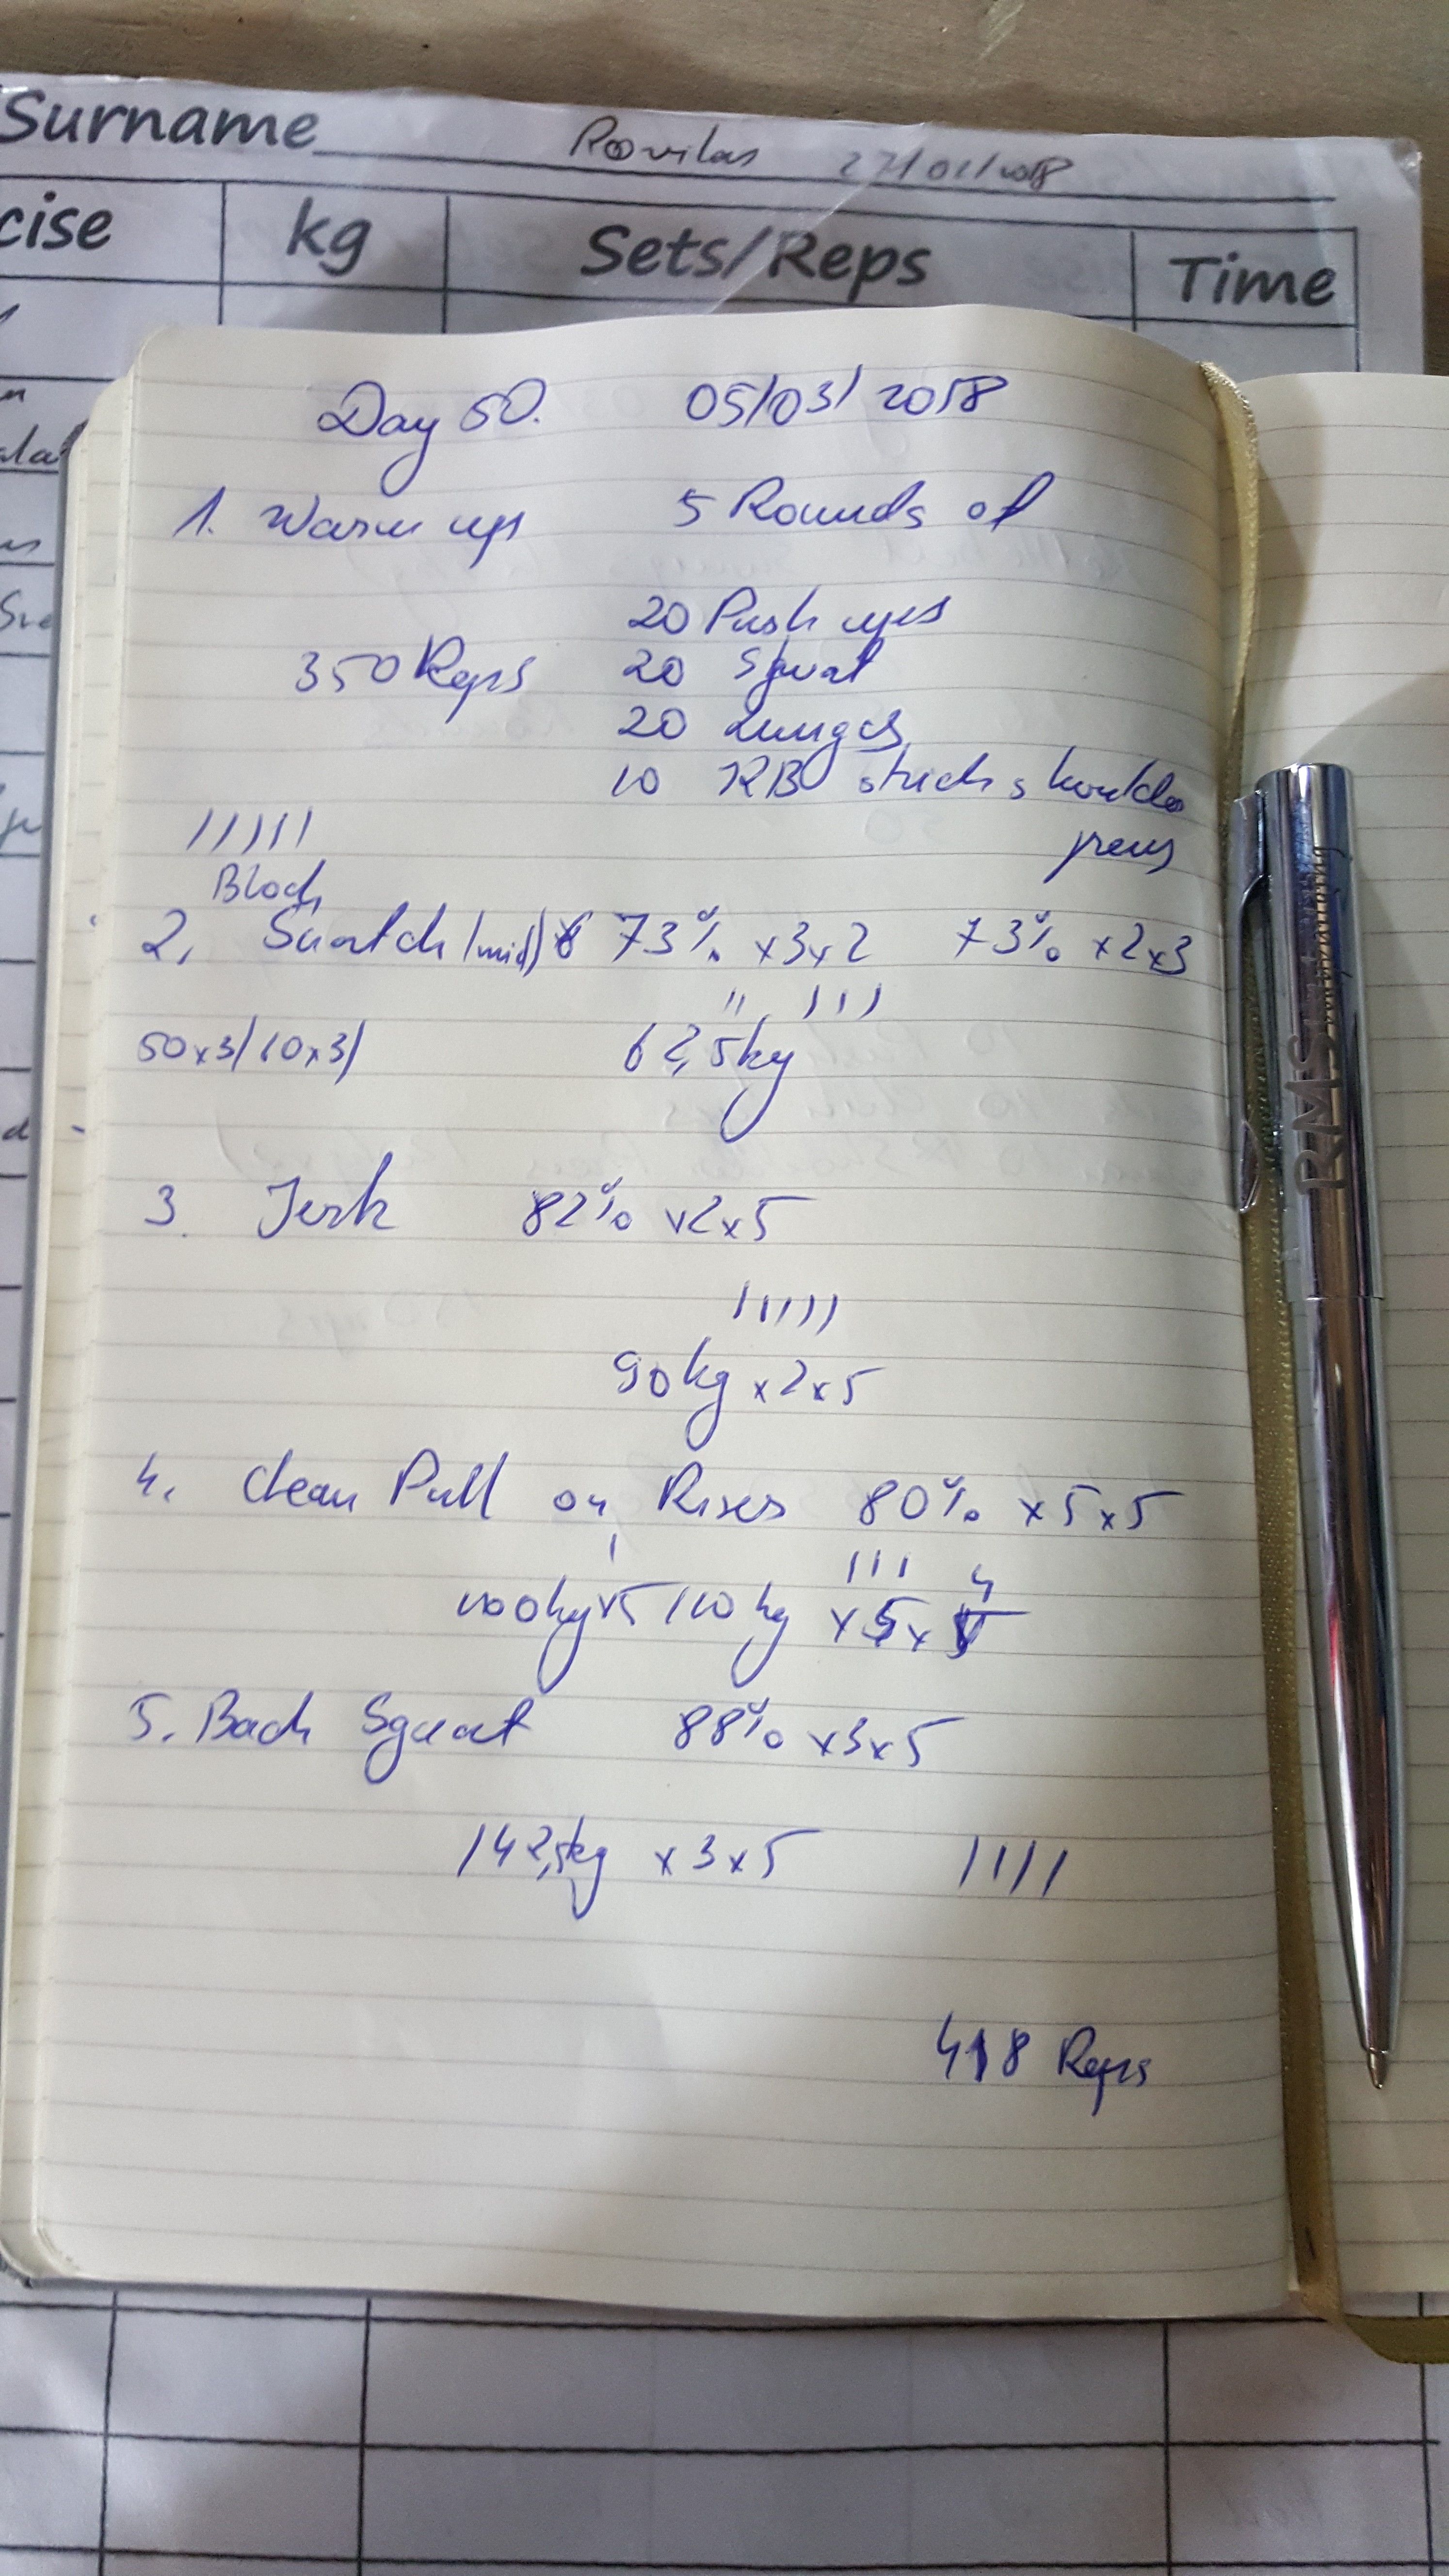 Surname Rovilas
cise kg Sets/Reps Time
Day 50. 05/03/2018
1. Warm up 5 Rounds of
20 Push ups
350 Reps 20 Squat
20 Lunges
10 RB shoulder
press
/////
Block
2. Snatch (mid) 73% x3x2 73% x2x3
// ///
50x3/ 60x3/ 62,5kg
3. Jerk 82% x2x5
/////
90kg x2x5
4. Clean Pull on Rises 80% x5x5
/ /// 4
100kgx5 110kg x5x
5. Back Squat 88% x3x5
142,5kg x3x5 ////
418 Reps
RMS